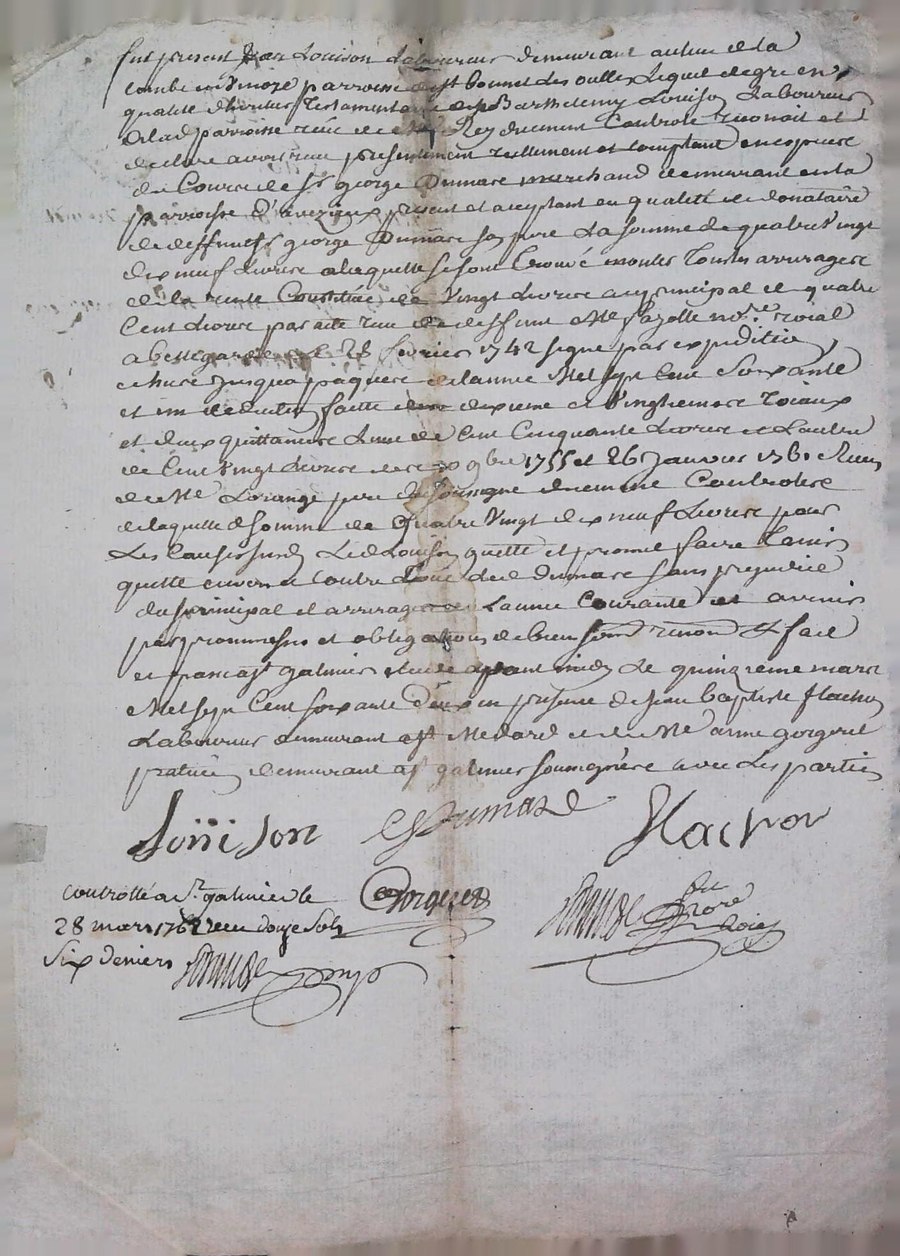 fut present Jean Louison Laboureur demeurant au lieu de la
combe en paroisse de st bonnet des oulles Lequel de gré en
qualité d'heritier Testamentaire de Barthelemy Louison Laboureur
de lad parroisse reçu de Me Rey duement Controlé reconoit et
declare avoir reçu presentement reellement et comptant en espece
du Cours de sr george Dumare marchand demeurant en la
parroisse d'aveizieux present et aceptant en qualité de donataire
de deffunt sr george Dumare son pere La somme de quatre Vingt
dix neuf Livres a laquelle se sont trouvé monter Tous les arrurages
de la rente Constituée de Vingt Livres au principal de quatre
Cent Livres par acte reçu de deffunt Me fayolle nore roial
a bellegarde le 28 fevrier 1742 signé par expedition
echus Jusqua paques de lannee Mil sept Cent Soixante
et un deduction faitte des dixieme et Vingtiemes roiaux
et deux quittances Lune de Cent Cinquante Livres et Lautre
de Cent Vingt Livres des 9bre 1755 et 26 Janvier 1761 Reçu
de Me Lorange pere du soussigné duement Controlees
de laquelle d somme de Quatre Vingt dix neuf Livres pour
Les causes susd Led Louison quitte et promet faire tenir
quitte envers et Contre tous led Dumare sans prejudice
du principal et arrurages de Lannee Courante et avenir
par promesses et obligations de biens soum renon & fait
et passé a st galmier etude avant midy Le quinzieme mars
Mil sept Cent soixante deux en presence de Jean baptiste flachon
Laboureur demeurant a st Medard et de Me gorgeret
praticien demeurant a st galmier soussignés avec Les parties
Louison Dumare Flachon
Controllé a St galmier le Gorgeret
28 mars 1762 reçu douze Sols
Six deniers